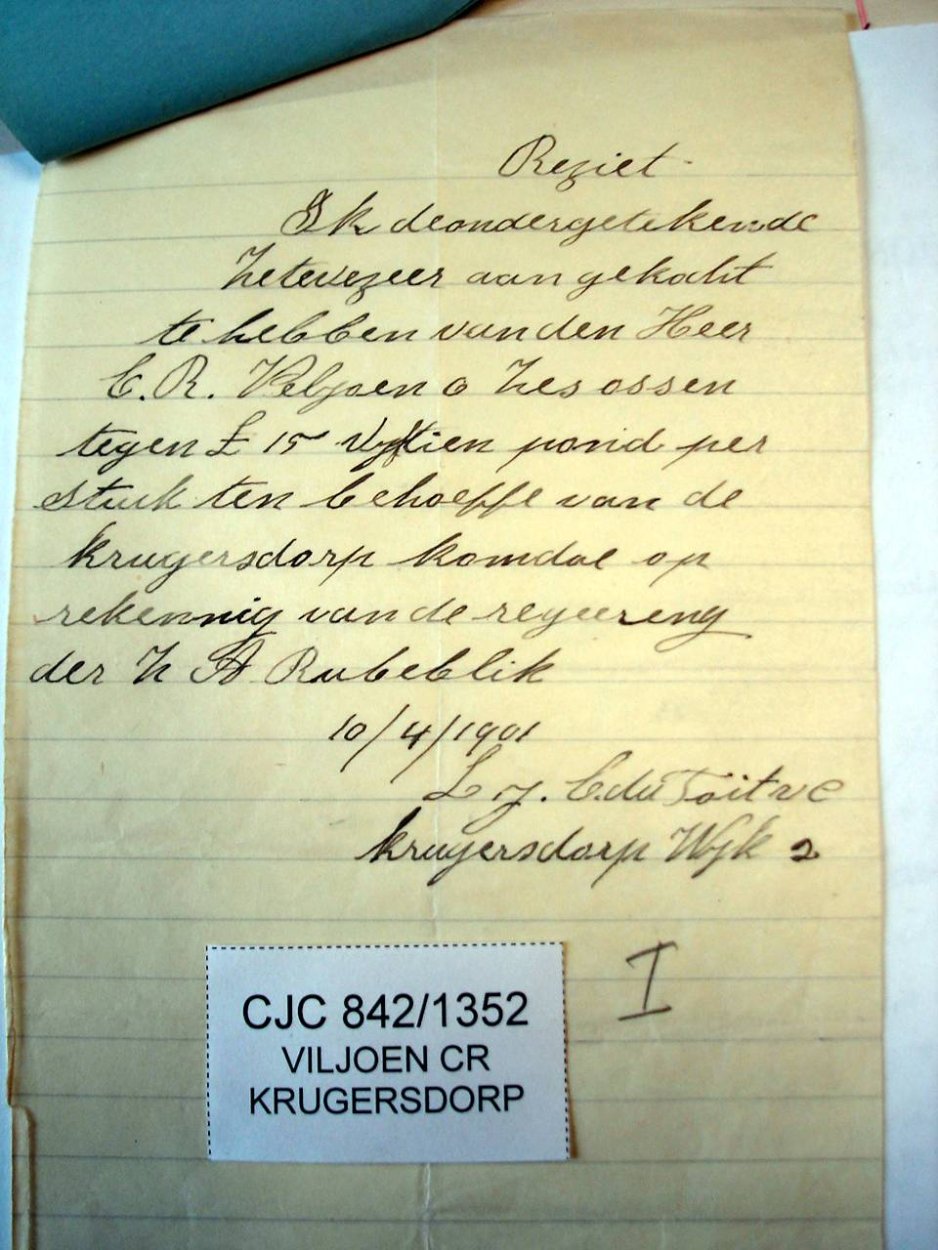 Reziet
Ik deondergetekende
zetevezeer aan gekocht
te hebben van den Heer
C. R. Veljoen 6 Zes ossen
tegen £ 15 Vijftien pond per
stuk ten behoeffe van de
krugersdorp komdoe op
rekennig van de regeereng
der Z A Rubeblik
10/4/1901
L. J. C. du Toit VC
krugersdorp Wyk 2
I
CJC 842/1352
VILJOEN CR
KRUGERSDORP